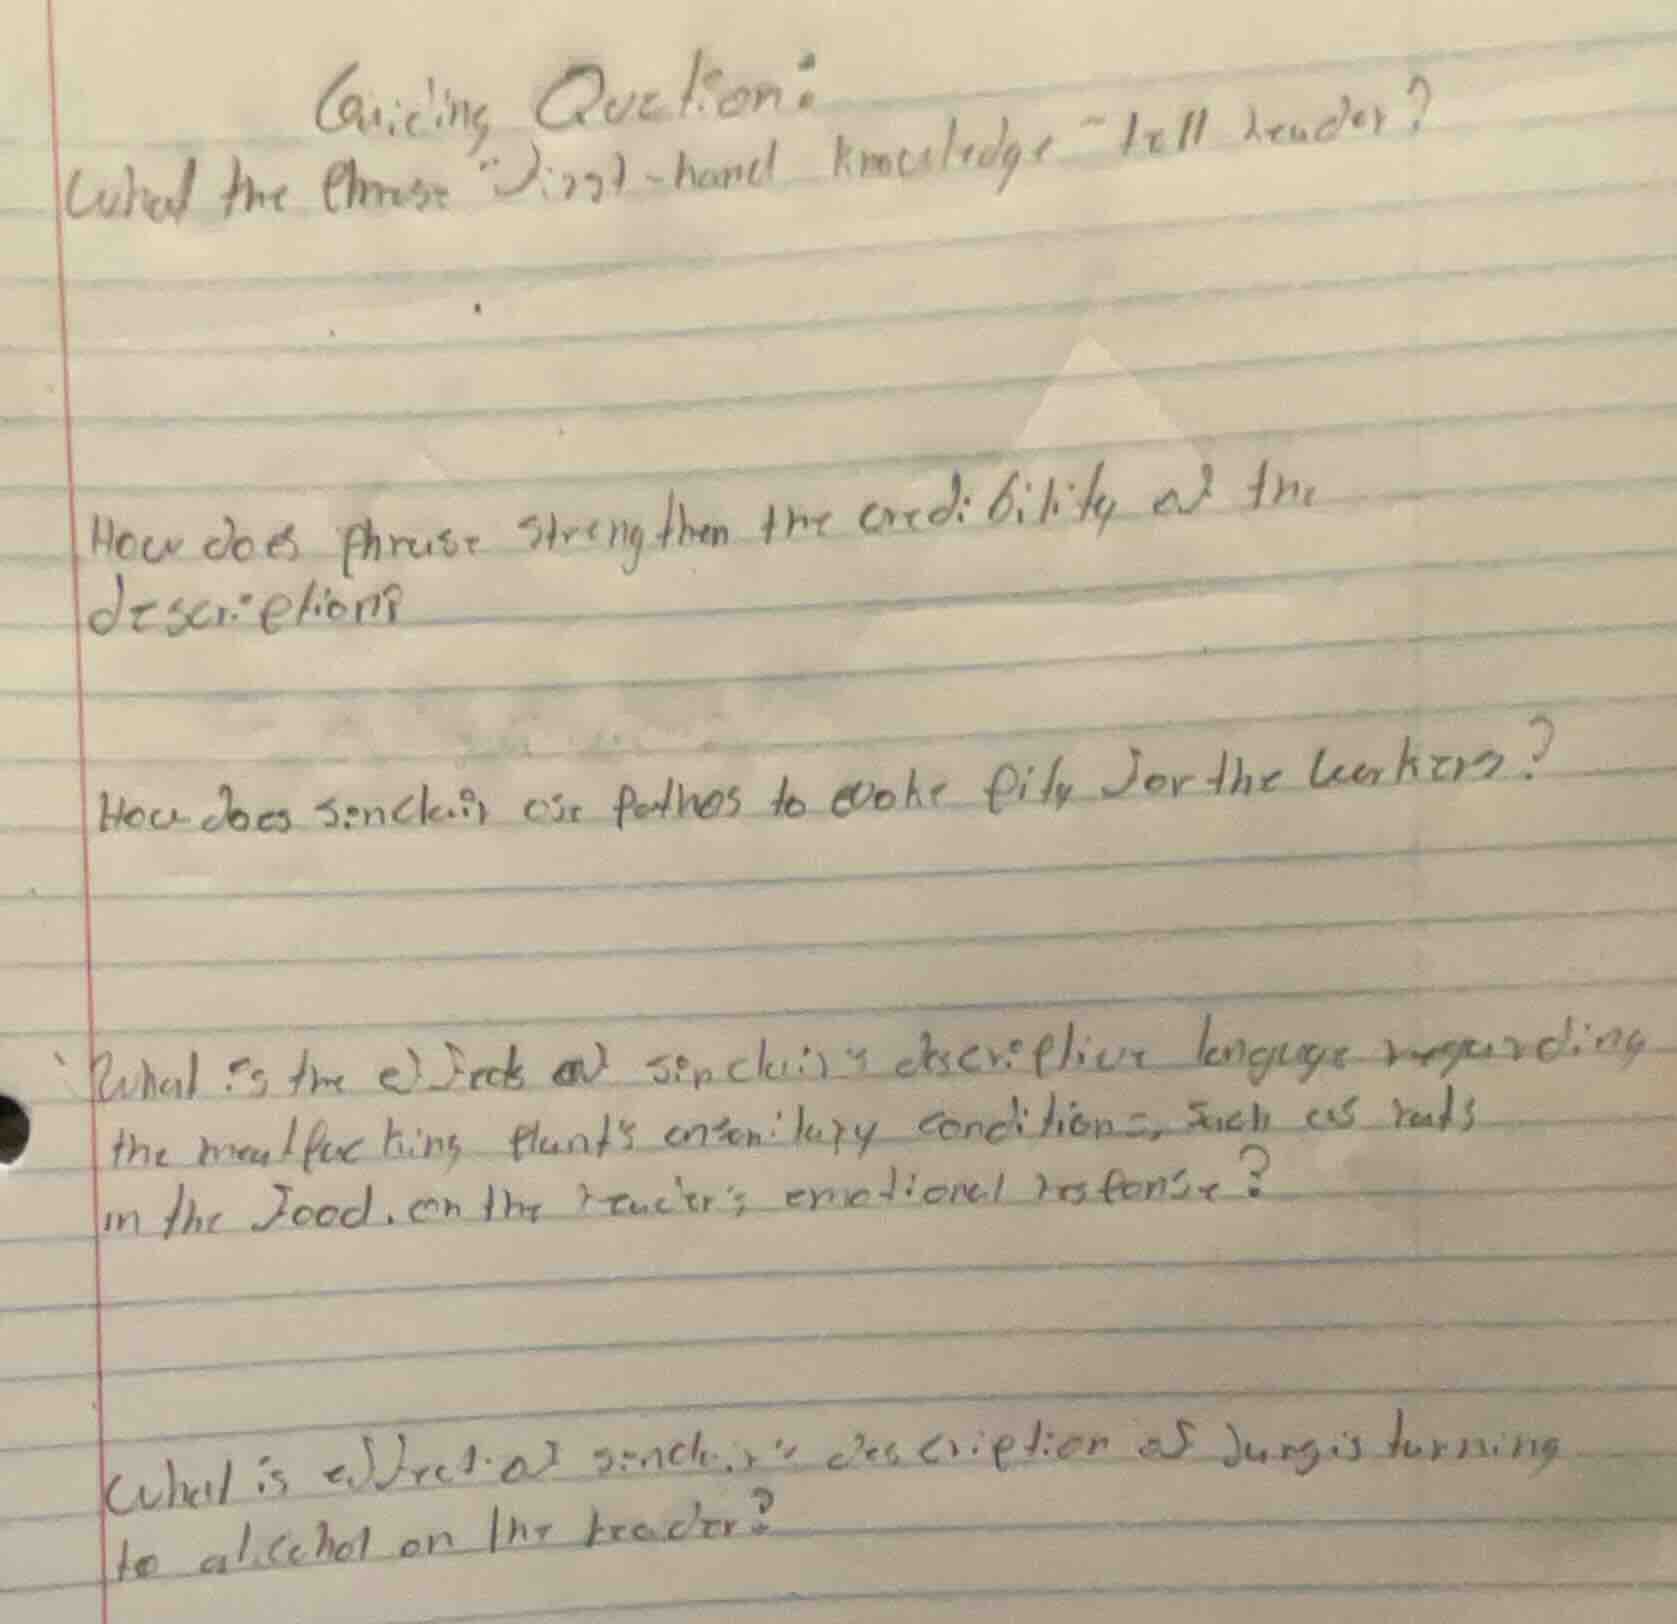 Guiding Quetion:
What the Phrase "First-hand knowledge" tell reader?
How does phrase strengthen the credibility of the
description?
How does sinclair use pathos to evoke pity for the workers?
What is the effect of sinclair's descriptive languge regarding
the meatpacking plant's unsanitary conditions, such as rats
in the food, on the reader's emotional response?
What is effect of sinclair's description of Jurgis turning
to alcohol on the reader?